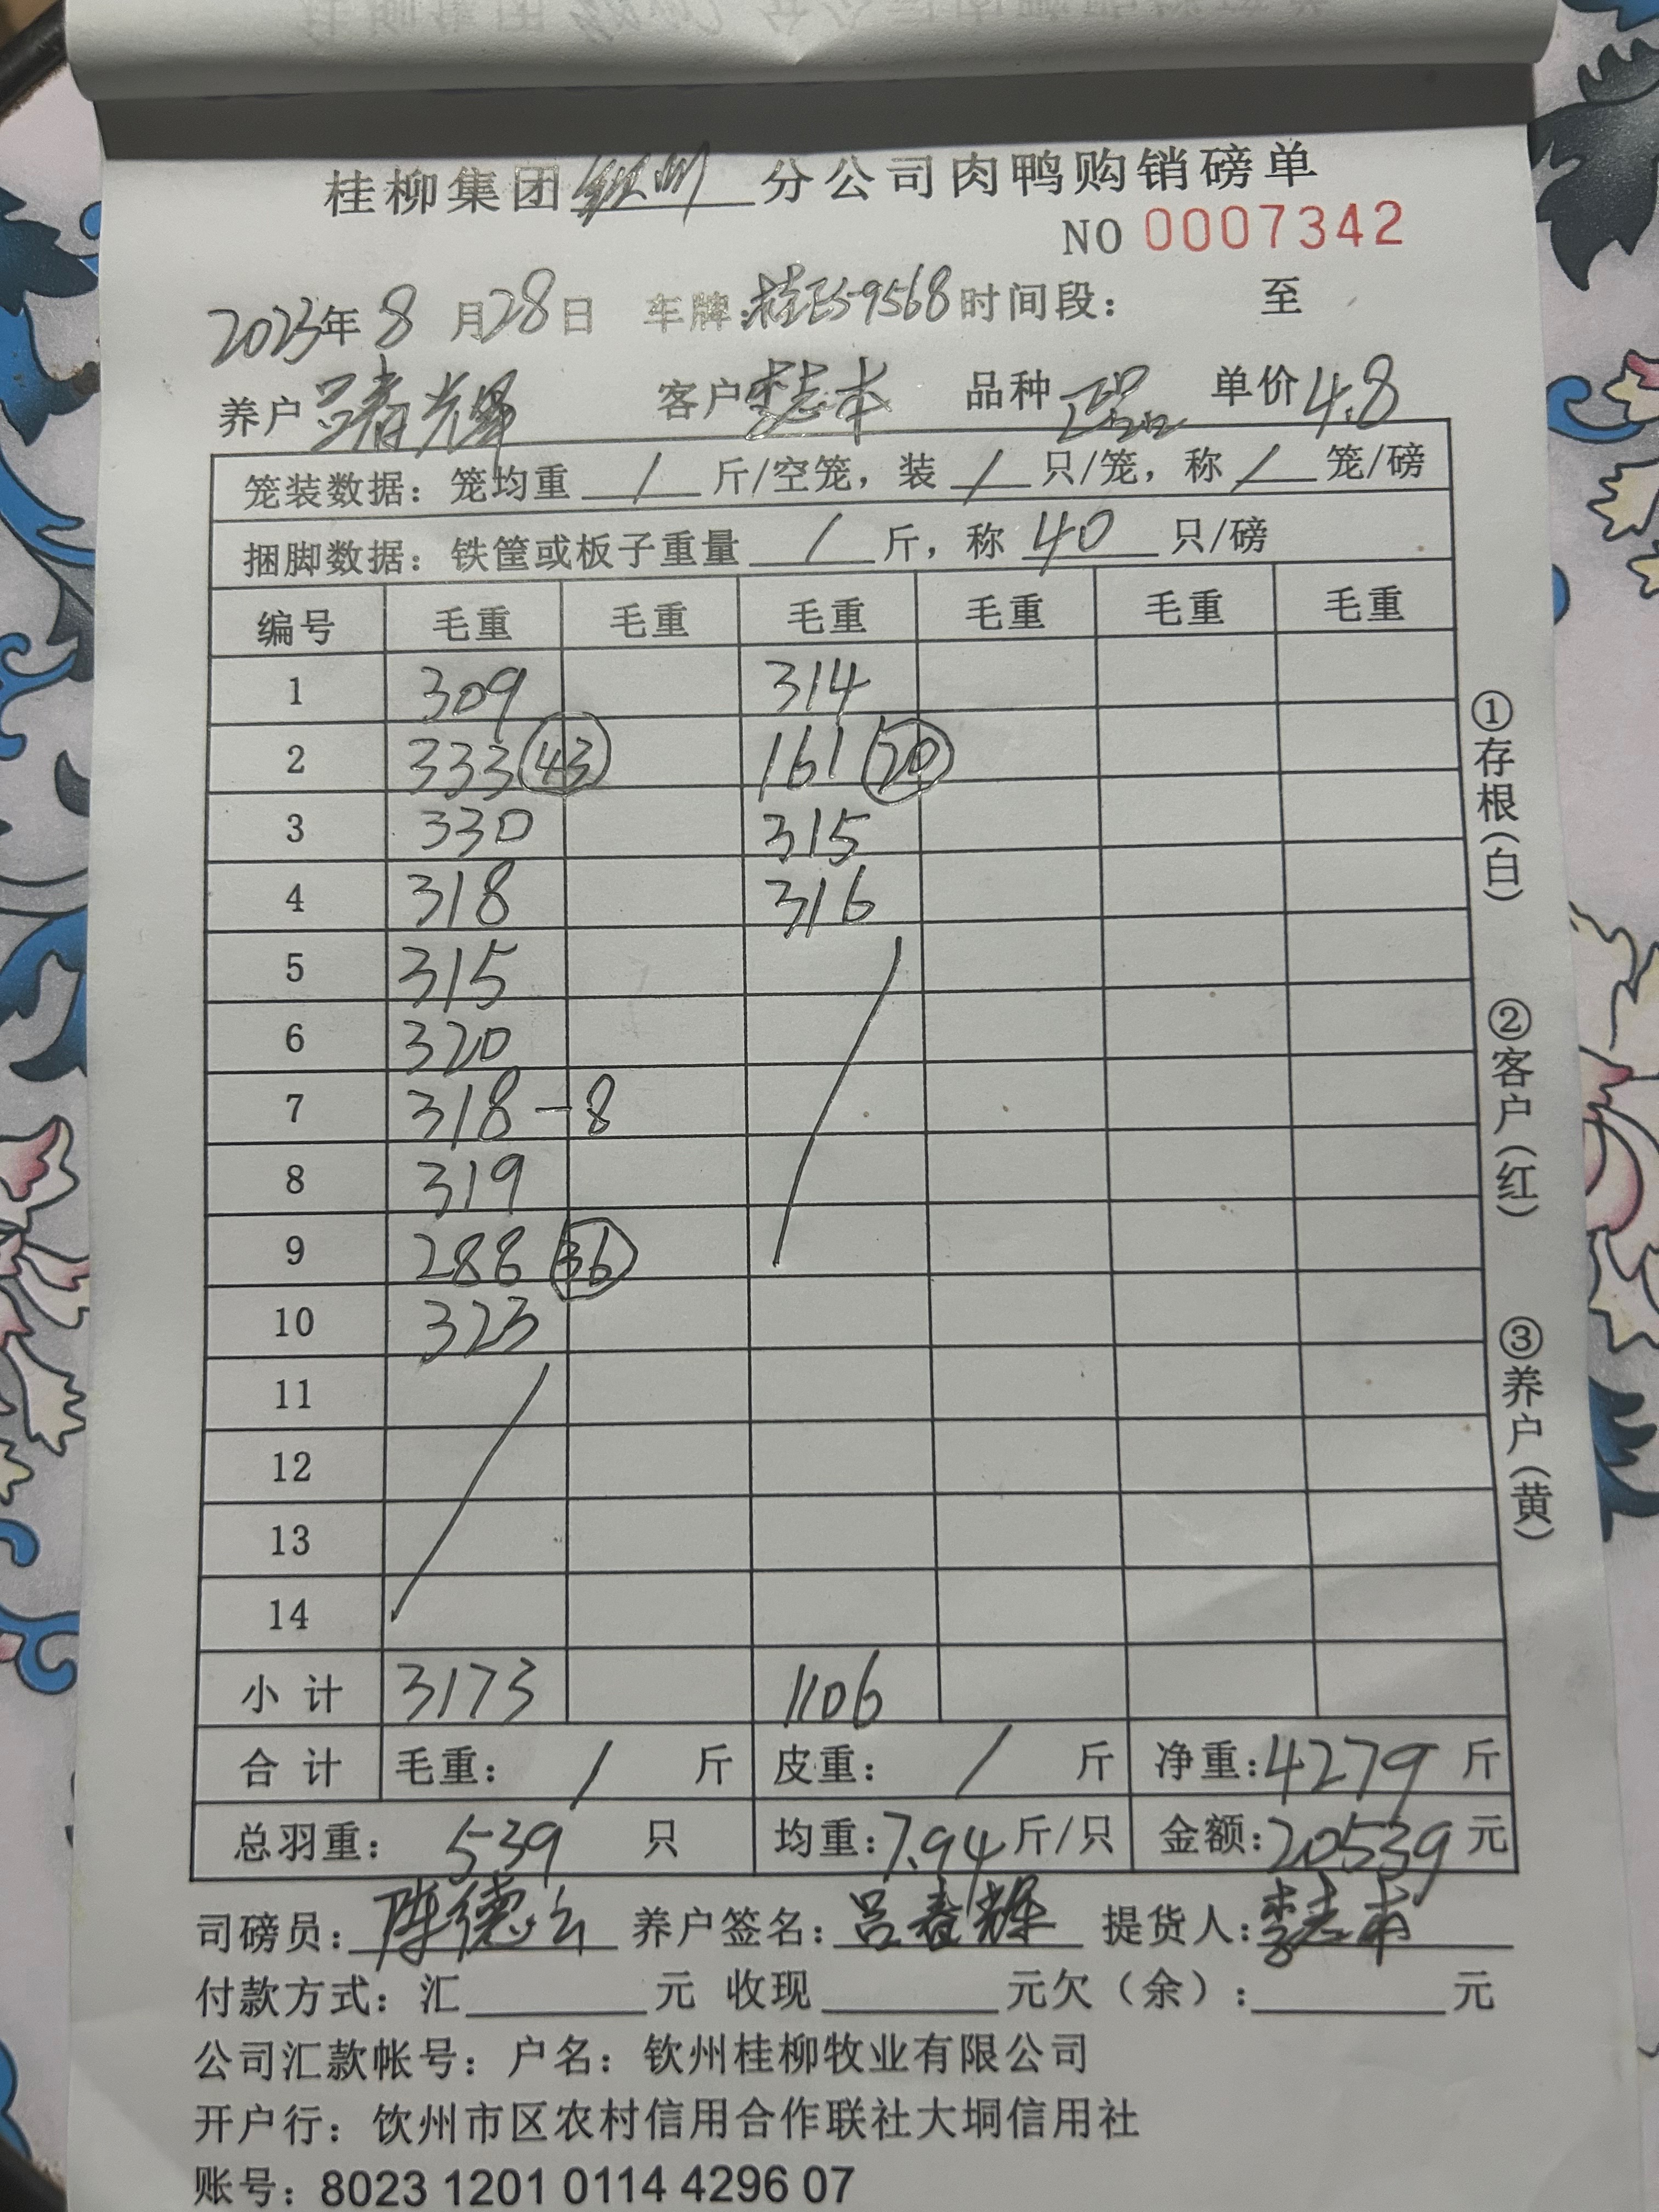 桂柳集团钦州分公司肉鸭购销磅单
NO 0007342
2023年8月28日 车牌:桂 59568 时间段: 至
养户 吕春辉 客户 李志本 品种 单价 4.8
笼装数据:笼均重 / 斤/空笼,装 / 只/笼,称 / 笼/磅
捆脚数据:铁筐或板子重量 / 斤,称 40 只/磅
编号 毛重 毛重 毛重 毛重 毛重 毛重
1 309 314
2 333 43 161 20
3 330 315
4 318 316
5 315
6 320
7 318-8
8 319
9 288 36
10 323
11
12
13
14
小计 3173 1106
合计 毛重: / 斤 皮重: / 斤 净重:4279 斤
总羽重: 539 只 均重:7.94 斤/只 金额:20539 元
司磅员:陈德云 养户签名:吕春辉 提货人:李志本
付款方式:汇 元 收现 元欠(余): 元
公司汇款帐号:户名:钦州桂柳牧业有限公司
开户行:饮州市区农村信用合作联社大垌信用社
账号:8023 1201 0114 4296 07
①存根(白)
②客户(红)
③养户(黄)